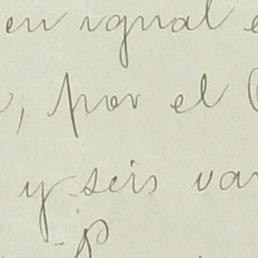 en igual
, por el
y seis var